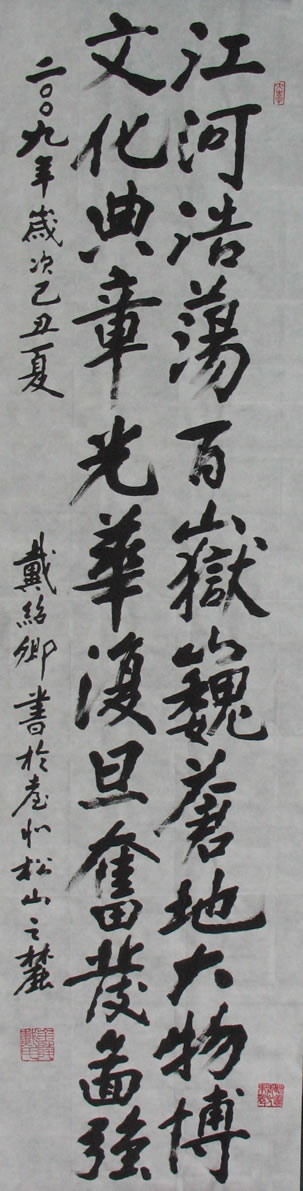 江河浩蕩百山嶽巍蒼地大物博
文化典章光華復旦奮發圖強
二〇〇九年歲次己丑夏
戴紹卿書於臺北松山之麓